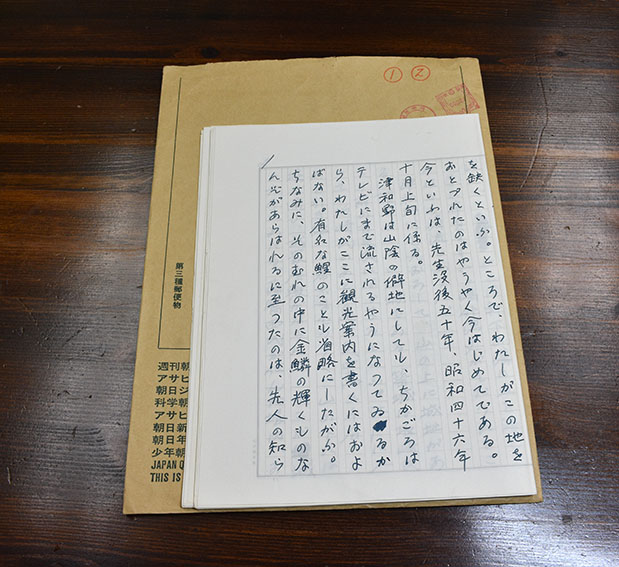 ① ②
を缺くといふ。ところで、わたしがこの地を
おとづれたのはやうやく今はじめてである。
今といふは、先生没後五十年、昭和四十六年
十月上旬に係る。
津和野は山陰の僻地にしても、ちかごろは
テレビにまで流されるやうになつてゐるか
ら、わたしがここに観光案内を書くにはおよ
ばない。有名な鯉のことも省略にしたがふ。
ちなみに、そのむれの中に金鱗の輝くものな
んぞがあらはれるに至つたのは、先人の知ら
第三種郵便物
週刊朝
アサヒ
朝日ジ
科学朝
アサヒ
朝日新
朝日年
少年朝
JAPAN Q
THIS IS